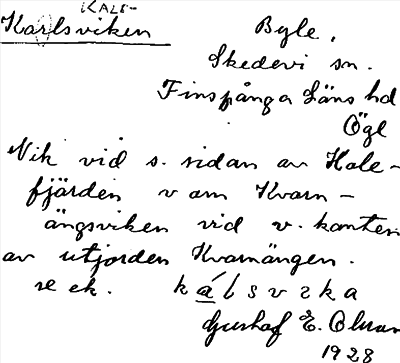 KALS-
Karlsviken
Byle,
Skedevi sn.
Finspånga Läns hd
Ögl
Vik vid s. sidan av Hale-
fjärden v om Kvarn-
ängsviken vid v. kanten
av utjorden Kvarnängen.
se ek. kálsvika
Gustaf E. Olsson
1928